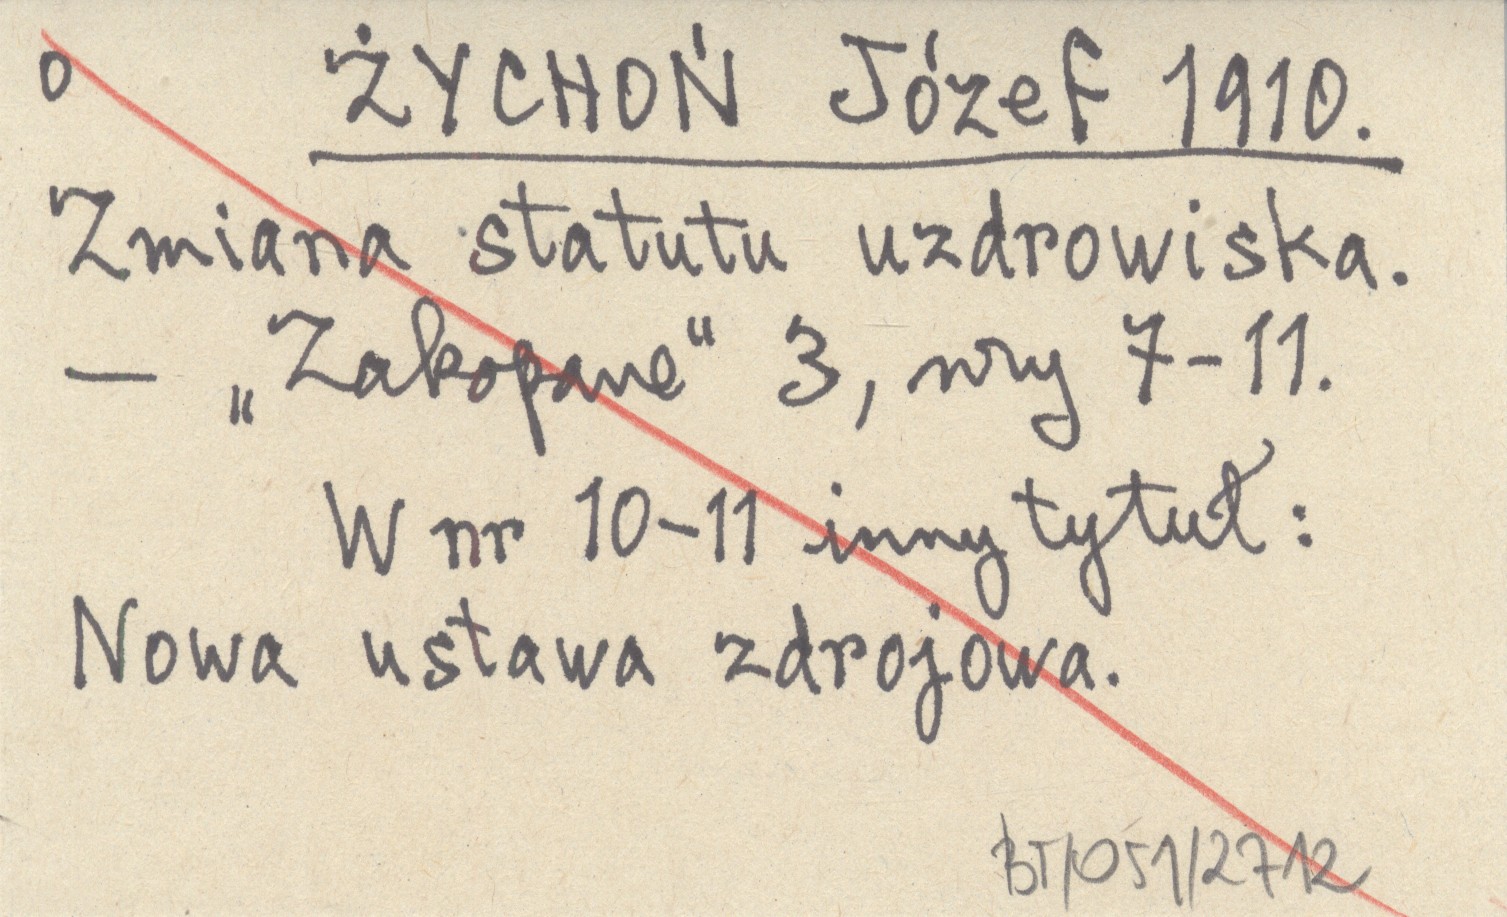 o ŻYCHOŃ Józef 1910.
Zmiana statutu uzdrowiska.
— „Zakopane“ 3, nry 7-11.
W nr 10-11 inny tytuł:
Nowa ustawa zdrojowa.
BT/051/2712